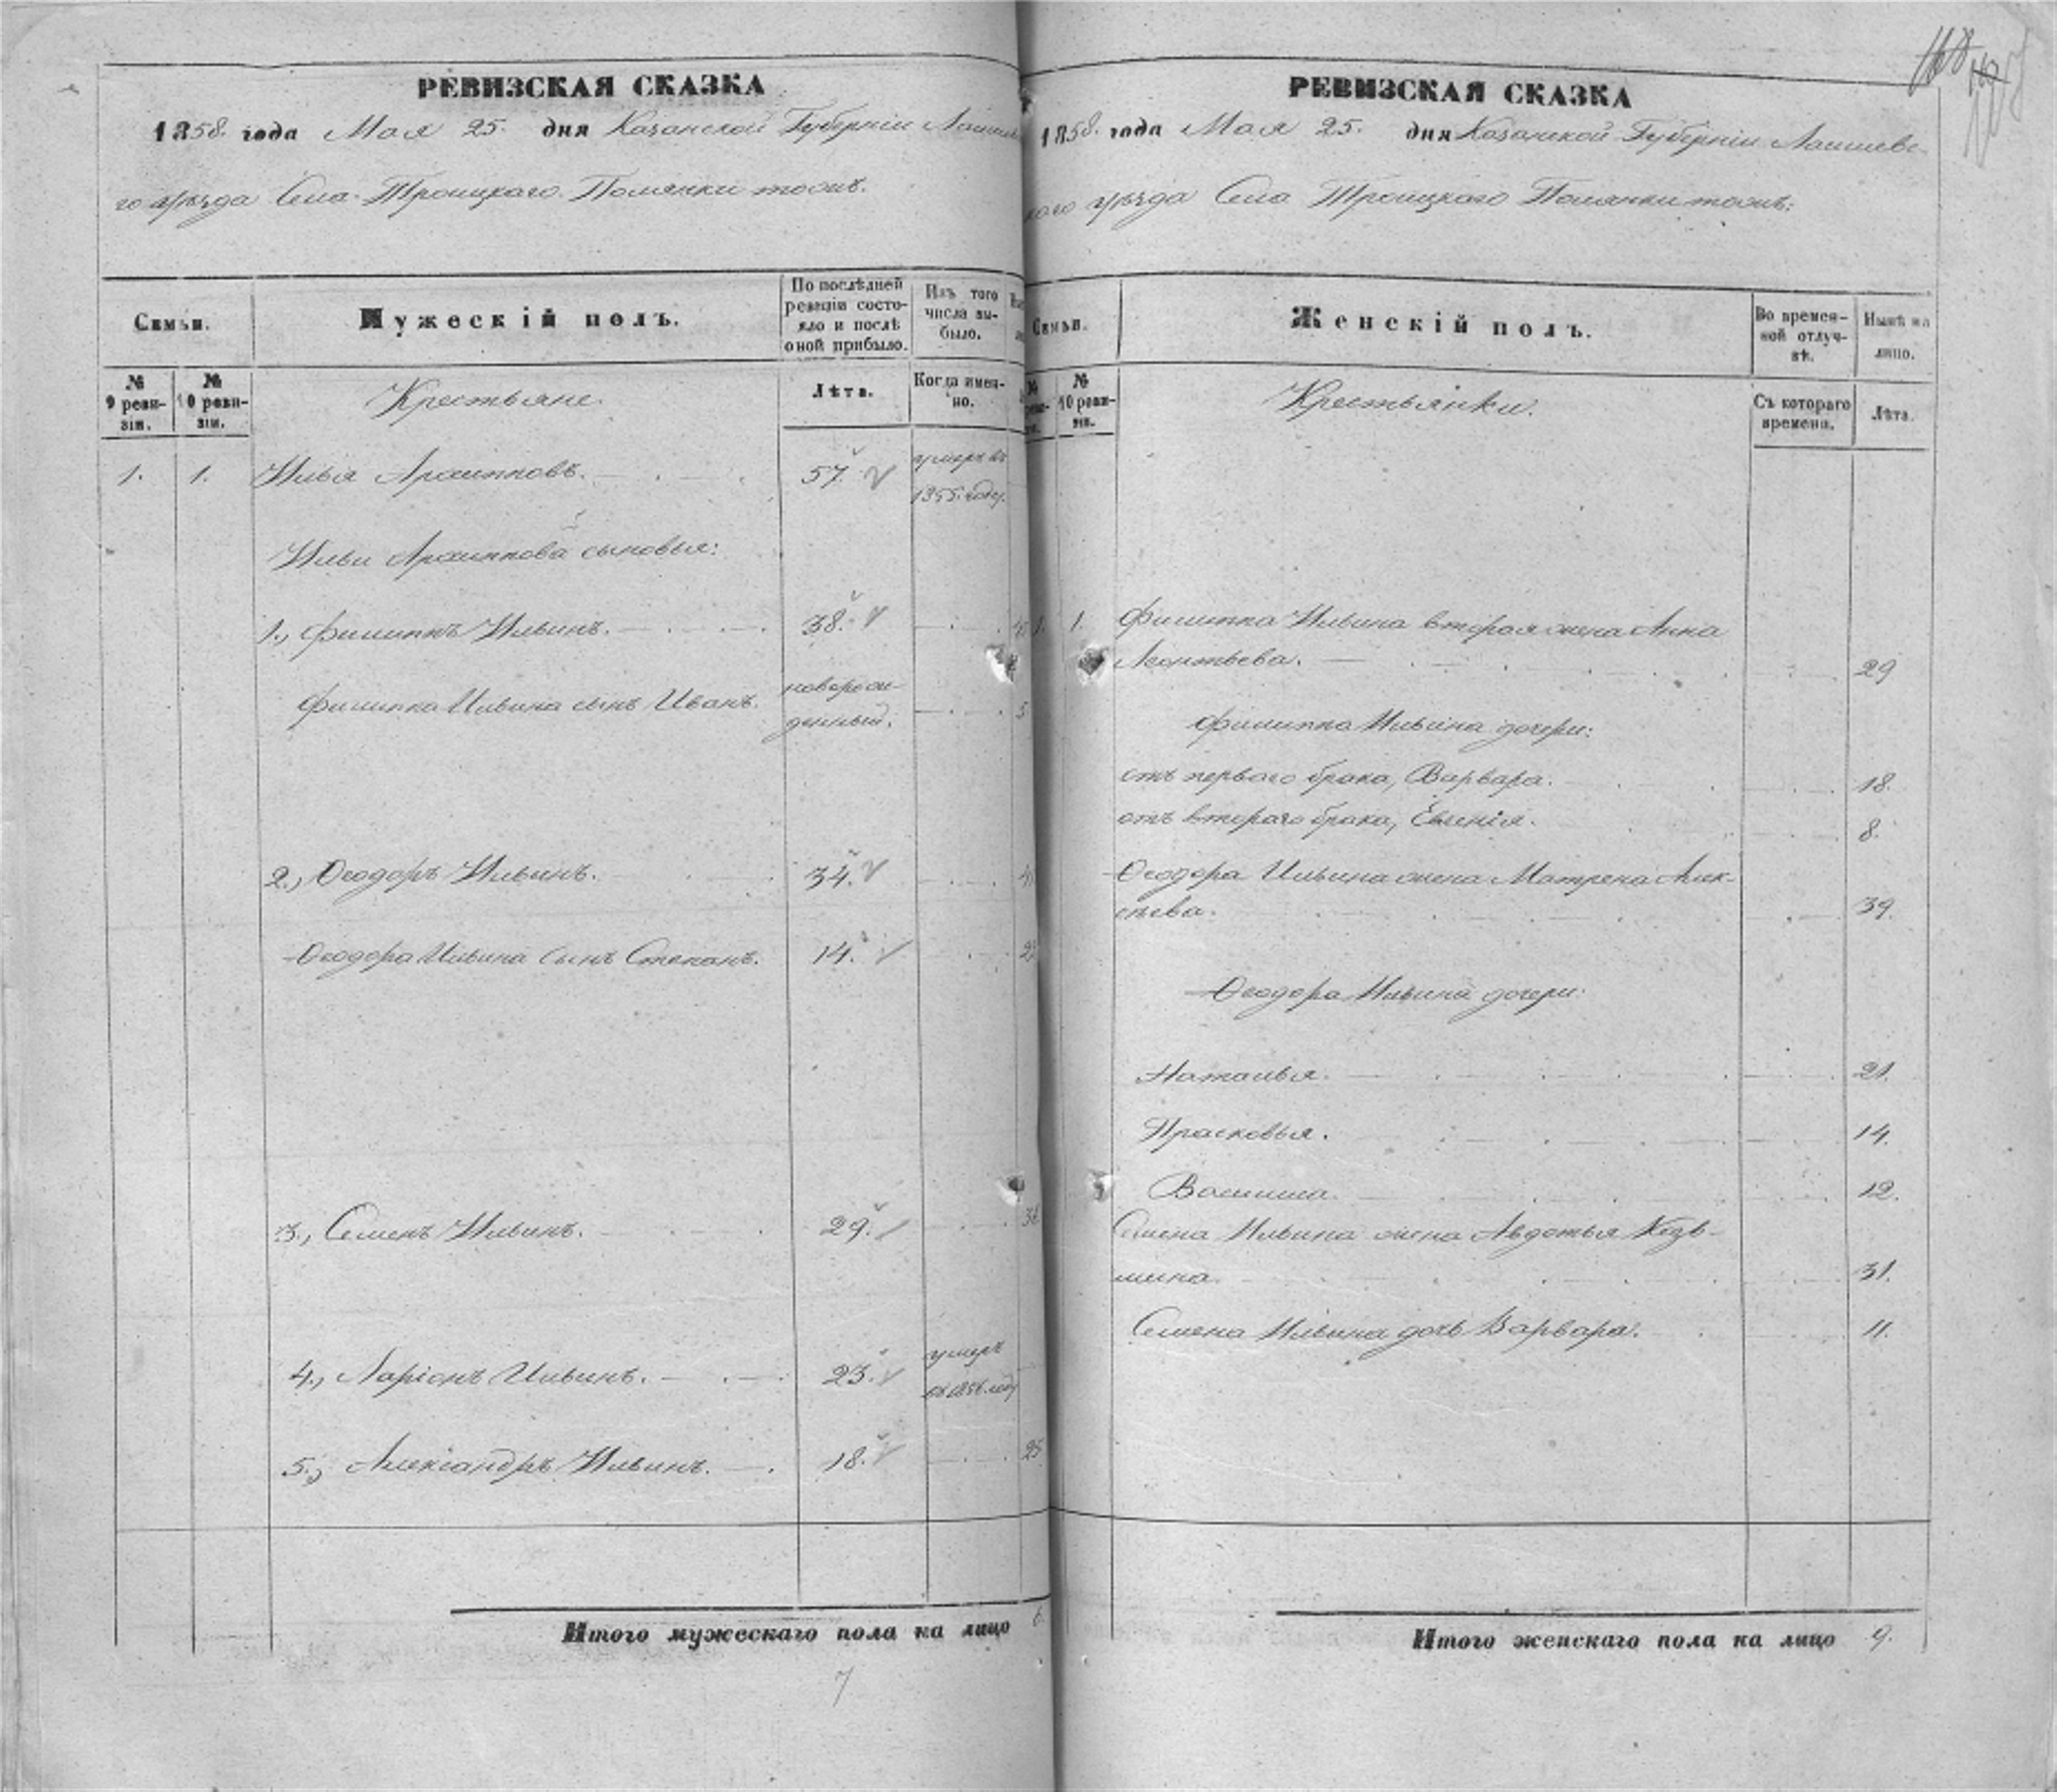 РЕВИЗСКАЯ СКАЗКА
1858. года Мая 25. дня Казанской Губерніи
го уѣзда Села Троицкаго
Семьи.
Мужескій полъ.
По послѣдней ревизіи состояло и послѣ оной прибыло.
Изъ того числа выбыло.
№ 9 ревизіи.
№ 10 ревизіи.
Крестьяне.
Лѣта.
Когда именно.
1. 1. Илья Архипповъ. 57. умеръ въ
1855. году.
Ильи Архиппова сыновья:
1., Филиппъ Ильинъ. 38.
Филиппа Ильина сынъ Иванъ. новорож-
денный.
2., Ѳеодоръ Ильинъ. 34.
Ѳеодора Ильина сынъ Степанъ. 14.
3., Семенъ Ильинъ. 29.
4., Ларіонъ Ильинъ. 23. умеръ
въ году
5., Александръ Ильинъ. 18. 25
Итого мужескаго пола на лицо 6.
7
РЕВИЗСКАЯ СКАЗКА
1858. года Мая 25. дня Казанской Губерніи Лаишевс-
каго уѣзда Села Троицкаго
Семьи.
Женскій полъ.
Во временной отлучкѣ.
Нынѣ на лицо.
№ 10 ревизіи.
Крестьянки.
Съ котораго времени.
Лѣта.
1. 1. Филиппа Ильина вторая жена Анна
Леонтьева. 29
Филиппа Ильина дочери:
отъ перваго брака, Варвара. 18.
отъ втораго брака, Евгенія. 8.
Ѳеодора Ильина жена Матрена Алек-
сѣева. 39.
Ѳеодора Ильина дочери:
Наталья. 21.
Прасковья. 14.
Василиса. 12.
Семена Ильина жена Авдотья Козь-
мина. 31.
Семена Ильина дочь Варвара. 11.
Итого женскаго пола на лицо 9.